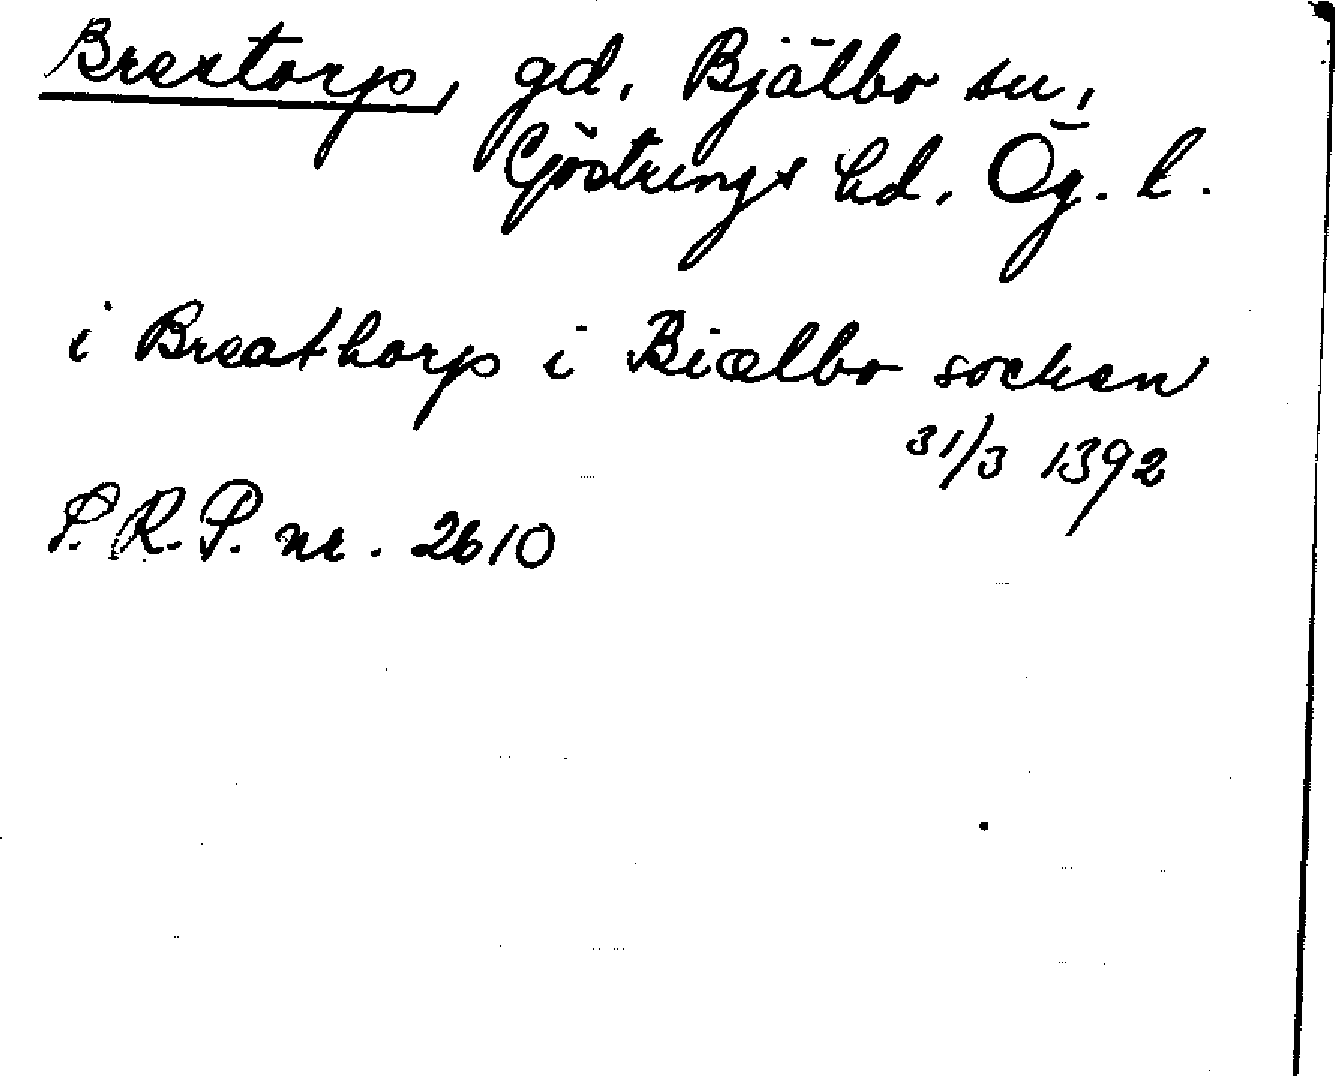 Brextorp, gd, Bjälbo sn,
Göstrings hd. Ög. l.
i Breathorp i Biælbo socken
31/3 1392
S.R.P. nr. 2610